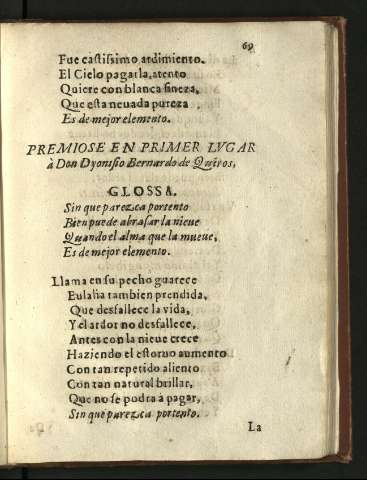 69
Fue castissimo ardimiento.
El Cielo pagarla atento
Quiere con blanca fineza,
Que esta neuada pureza
Es de mejor elemento.
PREMIOSE EN PRIMER LVGAR
à Don Dyonisio Bernardo de Quiros,
GLOSSA.
Sin que parezca portento
Bien puede abrasar la nieue
Quando el alma que la mueue,
Es de mejor elemento.
Llama en su pecho guarece
Eulalia tambien prendida,
Que desfallece la vida,
Y el ardor no desfallece,
Antes con la nieue crece
Haziendo el estoruo aumento
Con tan repetido aliento
Con tan natural brillar,
Que no se podra à pagar,
Sin que parezca portento.
La